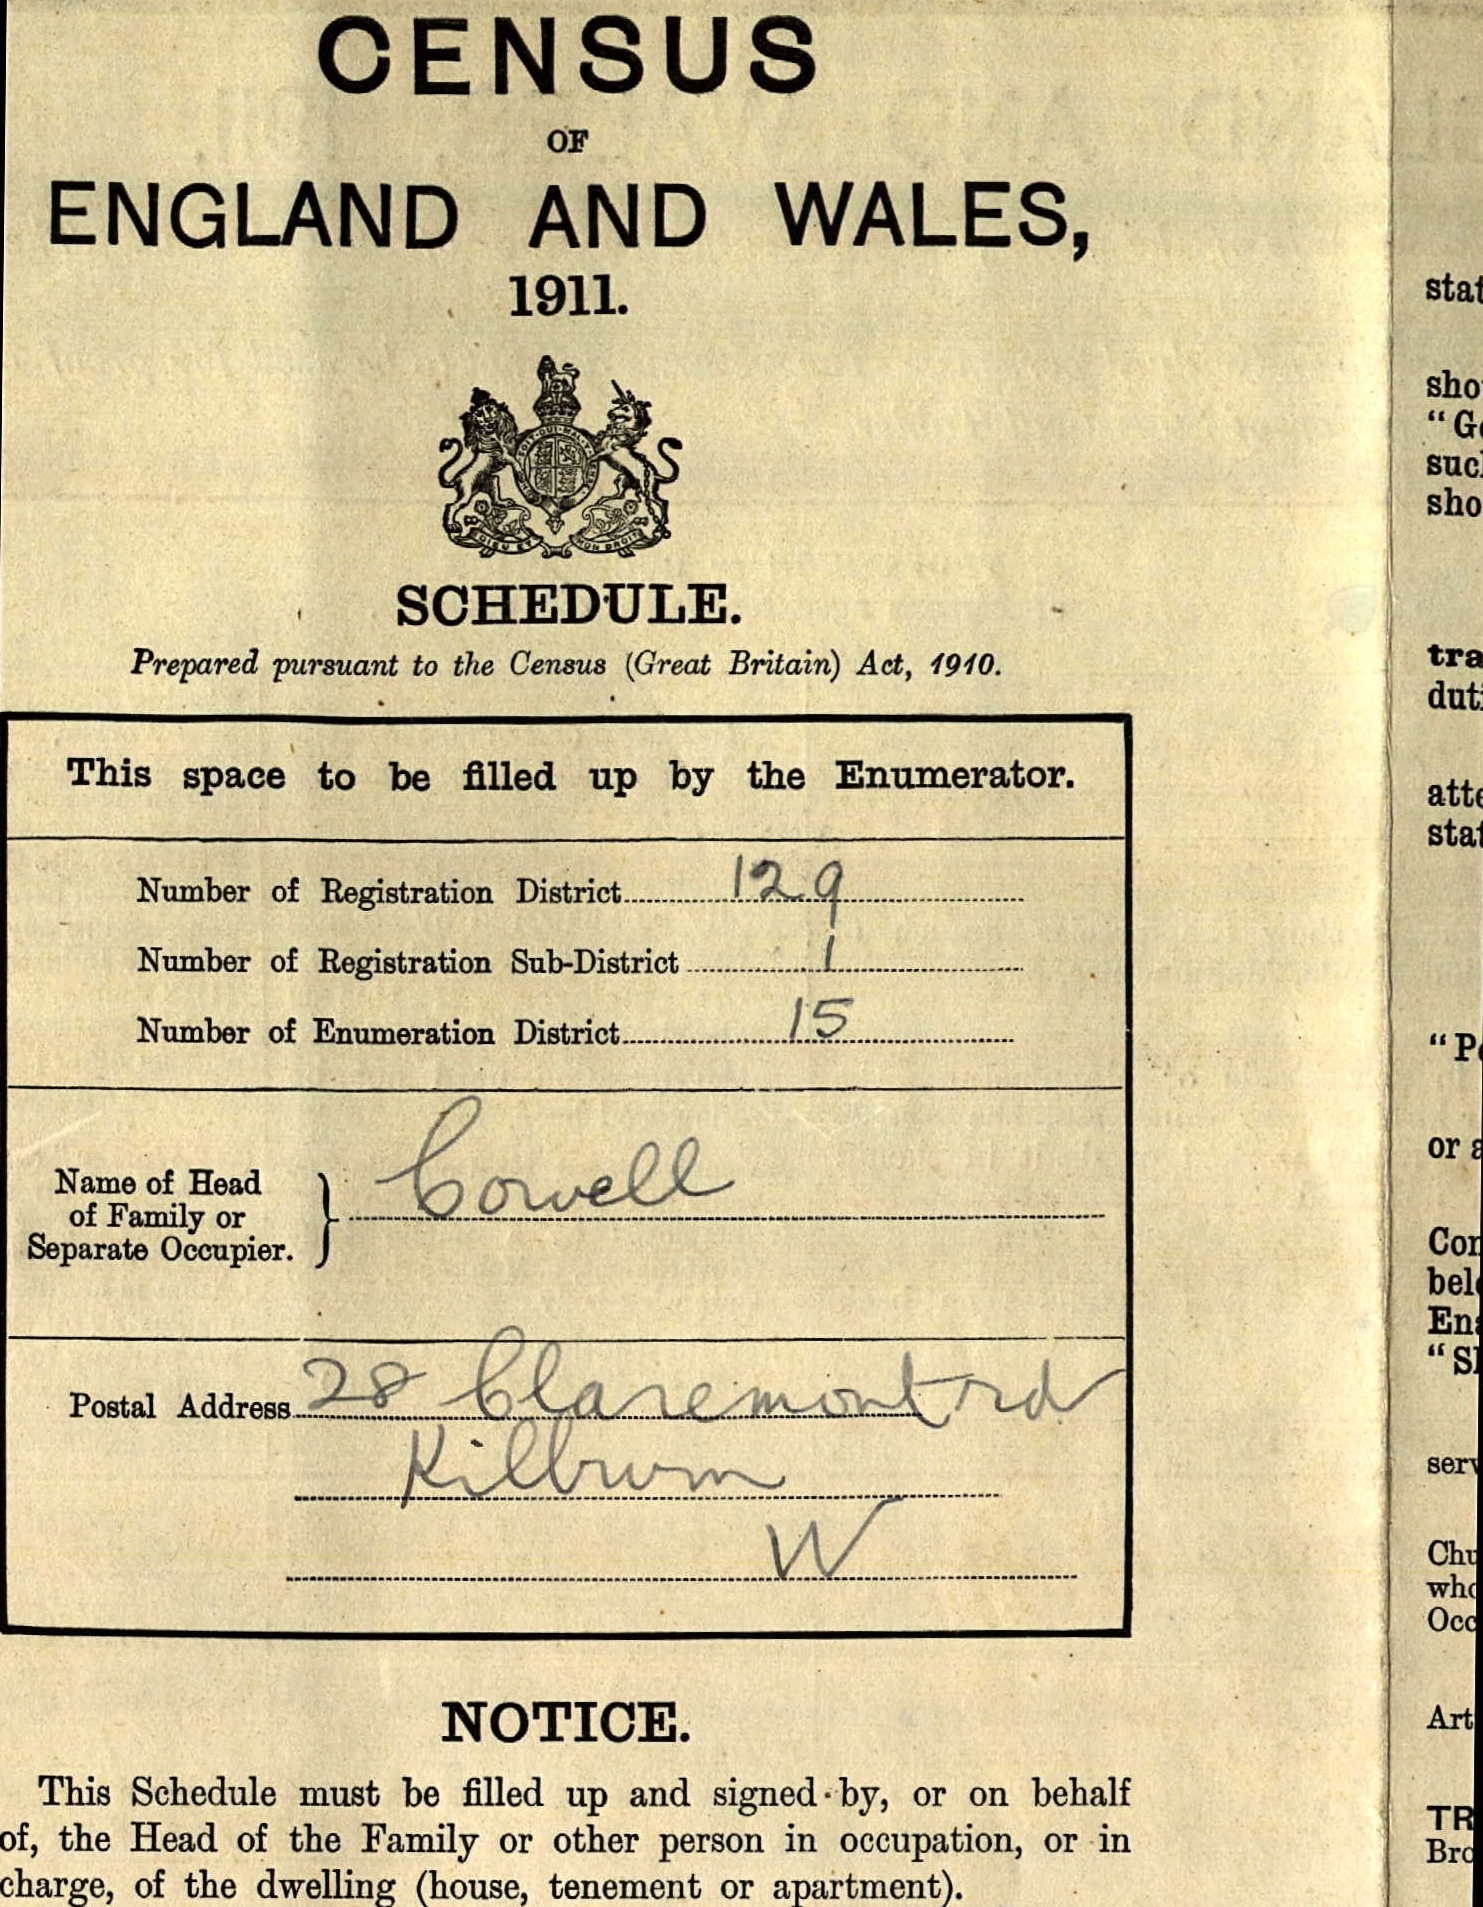 CENSUS
OF
ENGLAND AND WALES,
1911.
SCHEDULE.
Prepared pursuant to the Census (Great Britain) Act, 1910.
This space to be filled up by the Enumerator.
Number of Registration District 129
Number of Registration Sub-District 1
Number of Enumeration District 15
Name of Head
of Family or
Separate Occupier. } Cowell
Postal Address 28 Claremont rd
Kilburn
W
NOTICE.
This Schedule must be filled up and signed by, or on behalf
of, the Head of the Family or other person in occupation, or in
charge, of the dwelling (house, tenement or apartment).
stat
sho
"Ge
suc
sho
tra
duti
atte
stat
"Pe
or a
Con
bel
Ena
serv
Chu
who
Occ
Art
TR
Bro